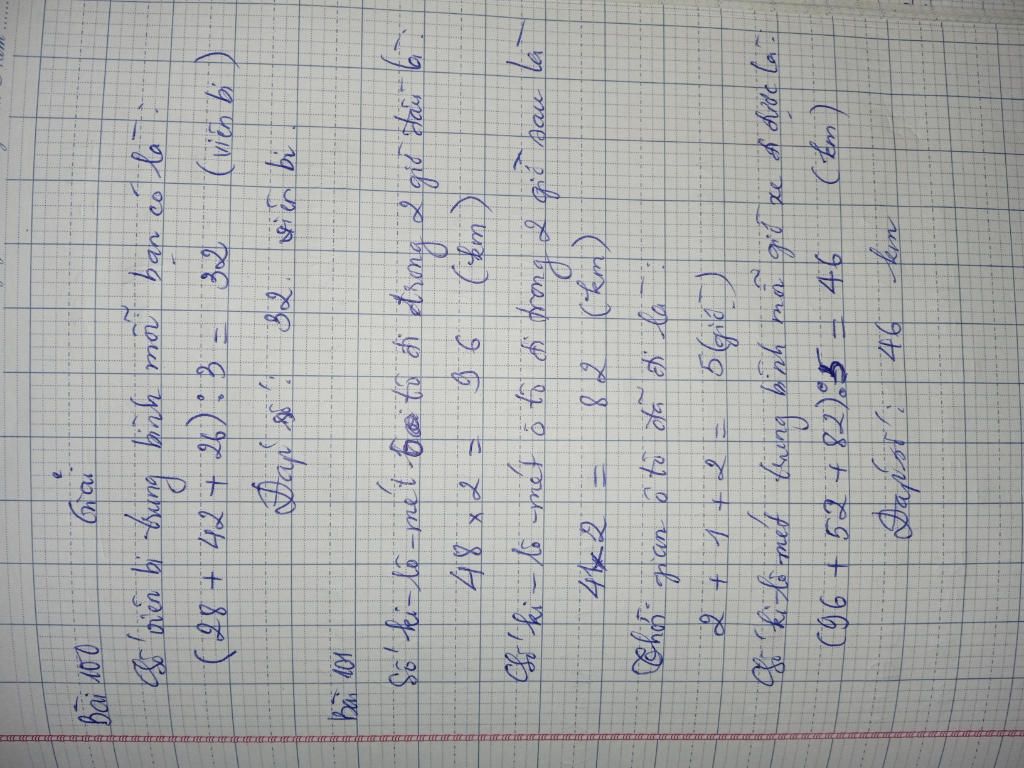 Bài 100 Giải
Số viên bi trung bình mỗi bạn có là:
(28 + 42 + 26) : 3 = 32 (viên bi)
Đáp số: 32 viên bi.
Bài 101
Số ki-lô-mét ô tô đi trong 2 giờ đầu là:
48 x 2 = 96 (km)
Số ki-lô-mét ô tô đi trong 2 giờ sau là
41 x 2 = 82 (km)
Thời gian ô tô đã đi là:
2 + 1 + 2 = 5 (giờ)
Số ki-lô-mét trung bình mỗi giờ xe đi được là:
(96 + 52 + 82) : 5 = 46 (km)
Đáp số: 46 km